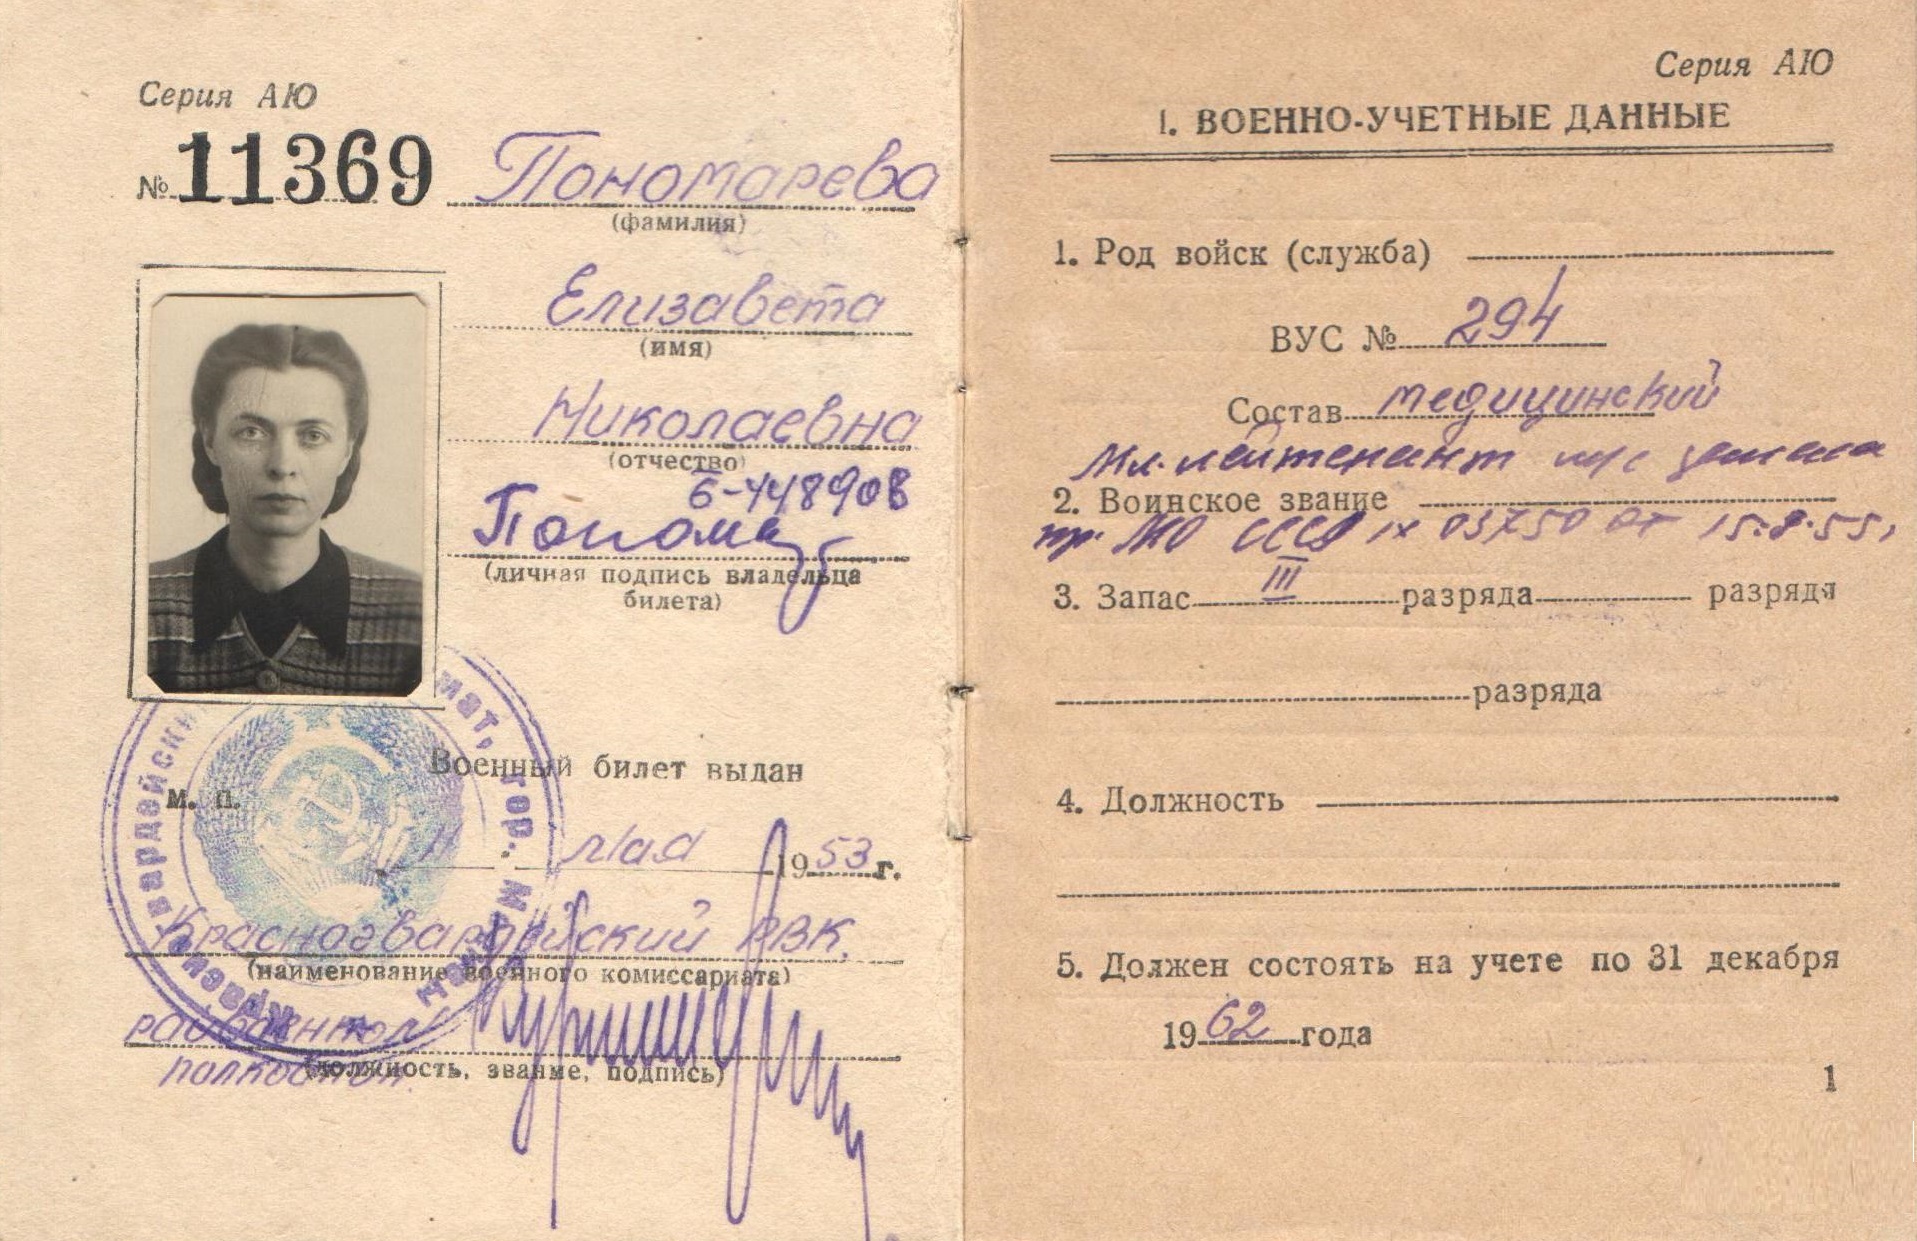 Серия АЮ
№ 11369
Пономарева
(фамилия)
Елизавета
(имя)
Николаевна
(отчество)
Б-448908
Пономар
(личная подпись владельца
билета)
Военный билет выдан
М. П.
11 мая 1953 г.
Красногвардейский РВК.
(наименование военного комиссариата)
райвоенком
полковник
(должность, звание, подпись)
вардейски мат, гор.
Серия АЮ
I. ВОЕННО-УЧЕТНЫЕ ДАННЫЕ
1. Род войск (служба)
ВУС № 294
Состав медицинский
Мл. лейтенант м/с запаса
2. Воинское звание
пр. МО СССР 03750 от 15.8.55г
3. Запас III разряда разряда
разряда
4. Должность
5. Должен состоять на учете по 31 декабря
1962 года
1